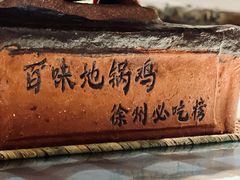 百味地锅鸡
徐州必吃榜